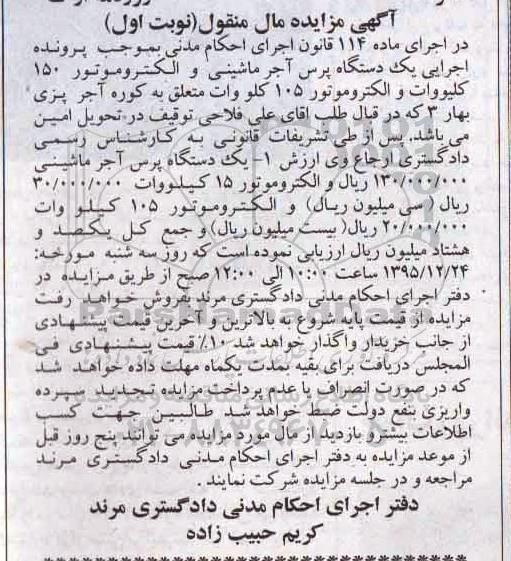 آگهی مزایده مال منقول(نوبت اول)
در اجرای ماده ۱۱۴ قانون اجرای احکام مدنی بموجب پرونده
اجرایی یک دستگاه پرس آجر ماشینی و الکتروموتور ۱۵۰
کلیووات و الکتروموتور ۱۰۵ کلو وات متعلق به کوره آجر پزی
بهار ۳ که در قبال طلب اقای علی فلاحی توقیف در تحویل امین
می باشد پس از طی تشریفات قانونی به کارشناس رسمی
دادگستری ارجاع وی ارزش ۱- یک دستگاه پرس آجر ماشینی
۱۳۰/۰۰۰/۰۰۰ ریال و الکتروموتور ۱۵ کیلووات ۳۰/۰۰۰/۰۰۰
ریال ( سی میلیون ریال) و الکتروموتور ۱۰۵ کیلو وات
۲۰/۰۰۰/۰۰۰ ریال( بیست میلیون ریال) و جمع کل یکصد و
هشتاد میلیون ریال ارزیابی نموده است که روز سه شنبه مورخه:
۱۳۹۵/۱۲/۲۴ ساعت ۱۰:۰۰ الی ۱۲:۰۰ صبح از طریق مزایده در
دفتر اجرای احکام مدنی دادگستری مرند بفروش خواهد رفت
مزایده از قیمت پایه شروع به بالاترین و آخرین قیمت پیشنهادی
از جانب خریدار واگذار خواهد شد ۱۰٪ قیمت پیشنهادی فی
المجلس دریافت برای بقیه بمدت یکماه مهلت داده خواهد شد
که در صورت انصراف یا عدم پرداخت مزایده تجدید سپرده
واریزی بنفع دولت ضبط خواهد شد طالبین جهت کسب
اطلاعات بیشترو بازدید از مال مورد مزایده می توانند پنج روز قبل
از موعد مزایده به دفتر اجرای احکام مدنی دادگستری مرند
مراجعه و در جلسه مزایده شرکت نمایند .
دفتر اجرای احکام مدنی دادگستری مرند
کریم حبیب زاده
ParsNamadData